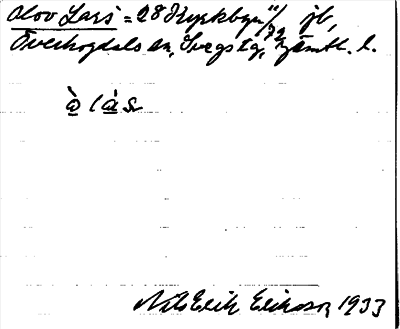 Olov Lars = 28 Kyrkbyn 11/72 jb,
Överhogdals sn, Svegs tg, Jämtl. l.
à l á s
Nils Erik Eriksson 1933